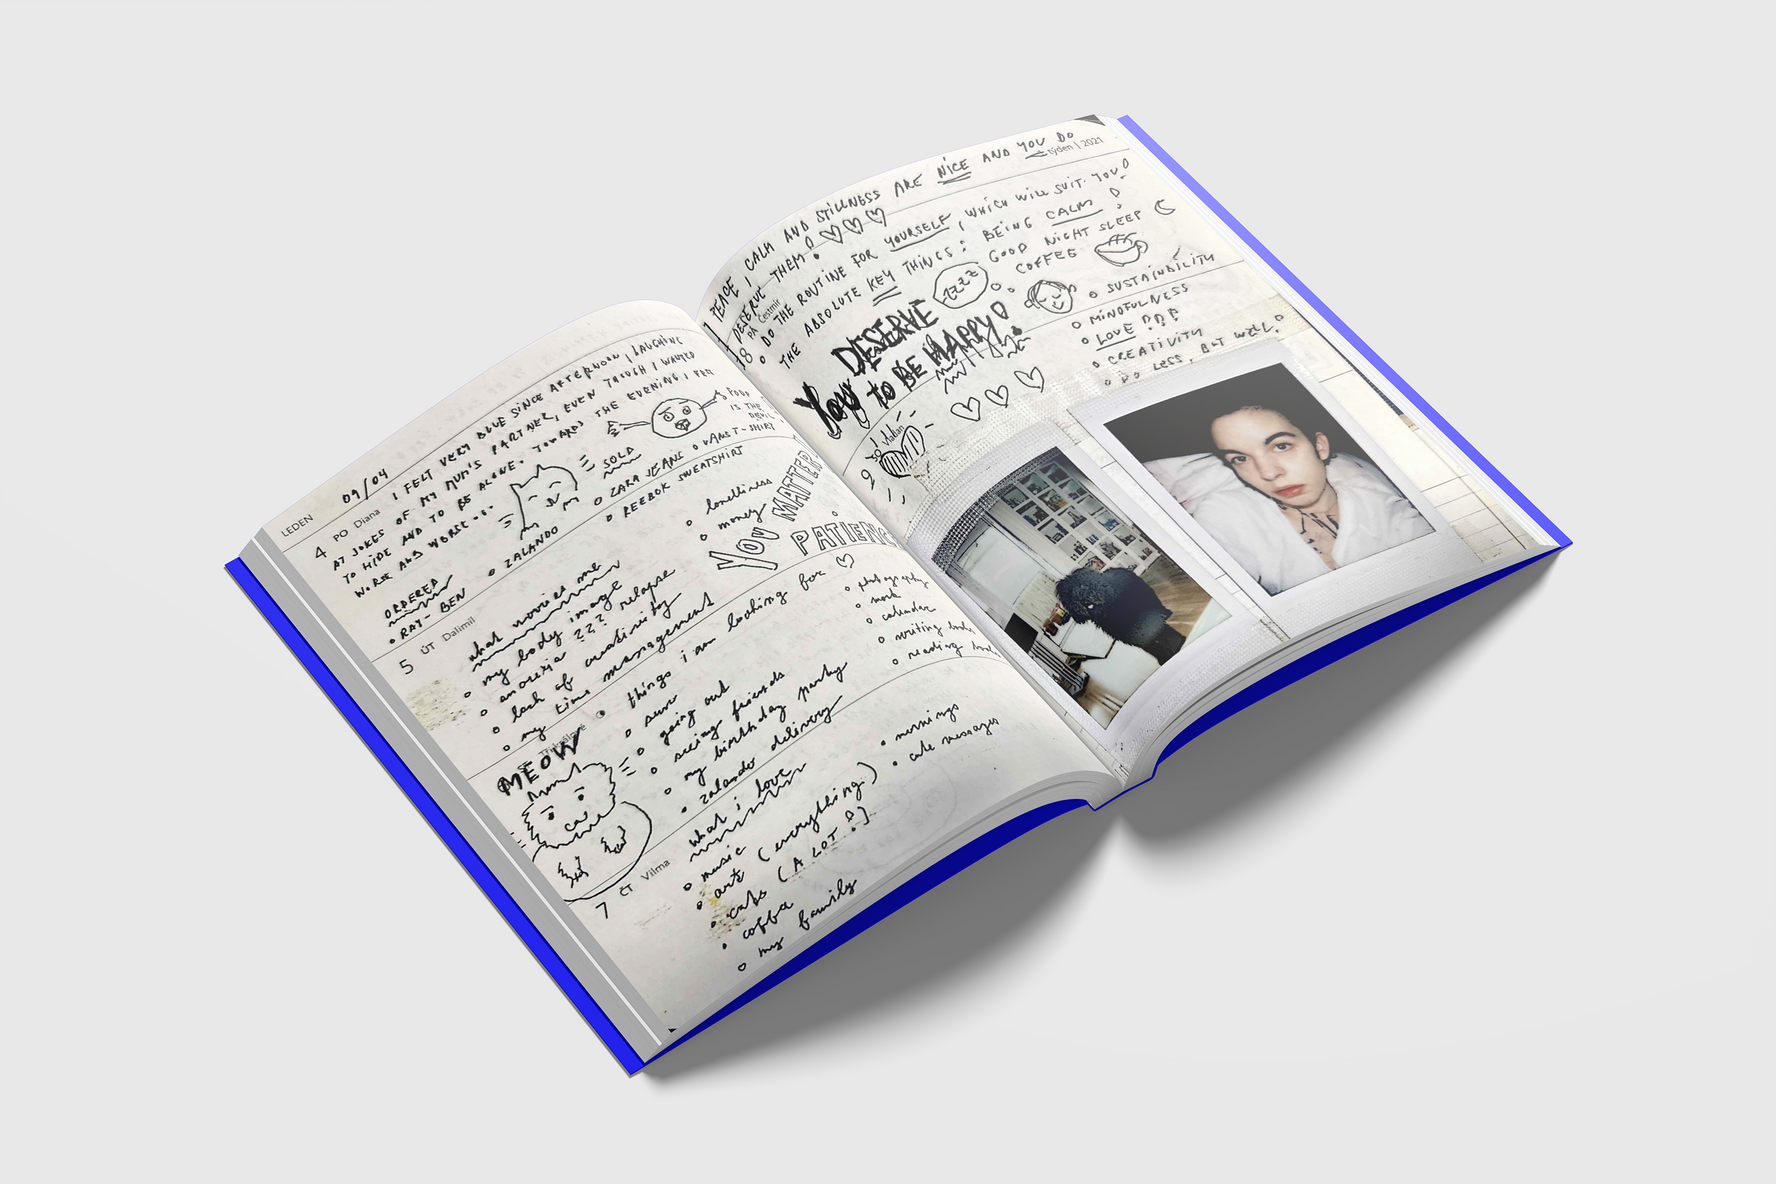 LEDEN
09/04
4 PO Diana
I FELT VERY BLUE SINCE AFTERNOON, LAUGHING
AT JOKES OF MY MUM'S PARTNER, EVEN THOUGH I WANTED
TO HIDE AND TO BE ALONE. TOWARDS THE EVENING, I FELT
WORSE AND WORSE...
FOOD
IS THE
DEVIL
SOLD
ORDERED
• RAY-BEN
• ZALANDO
• ZARA JEANS
• VANS T-SHIRT
• REEBOK SWEATSHIRT
5 ÚT Dalimil
what worries me
• my body image
• anorexia ??? relapse
• lack of creativity
• my time management
• loneliness
• money
YOU MATTER!
PATIENCE
• things i am looking for
• going out
• seeing friends
• my birthday party
• zalando delivery
• photography
• work
• calendar
• writing books
• reading books
MEOW
7 ČT Vilma
what i love
• music
• art (everything)
• cats (A LOT!)
• coffee
• my family
• mornings
• cute messages
týden | 2021
PEACE, CALM AND STILLNESS ARE NICE AND YOU DO
DESERVE THEM!
8 PÁ Čestmír
• DO THE ROUTINE FOR YOURSELF, WHICH WILL SUIT YOU!
THE ABSOLUTE KEY THINGS: BEING CALM!
GOOD NIGHT SLEEP
COFFEE
ZZZZ
YOU DESERVE
TO BE HAPPY!
• SUSTAINBILITY
• MINDFULNESS
• LOVE !!!
• CREATIVITY
• DO LESS, BUT WELL!
9 SO Vladan